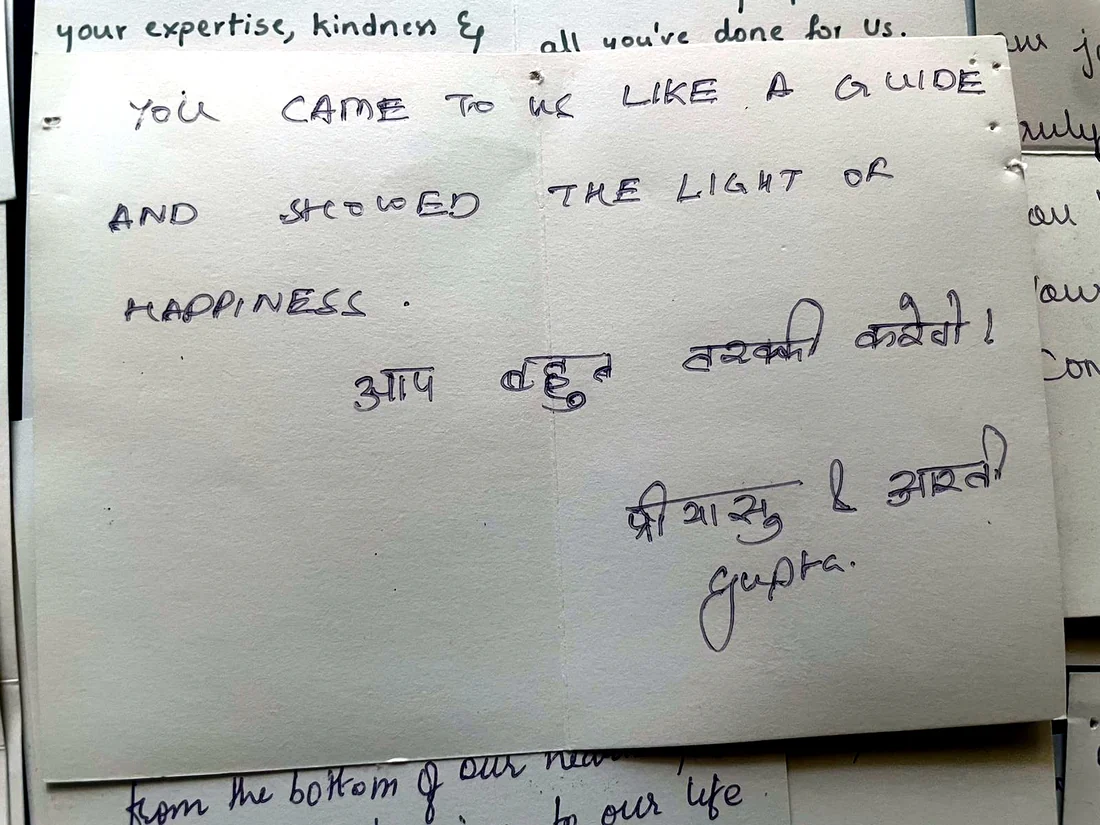 your expertise, kindness &
all you've done for us.
YOU CAME TO US LIKE A GUIDE
AND SHOWED THE LIGHT OF
HAPPINESS.
आप बहुत तरक्की करेगे।
प्रीयासु & आरती
Gupta.
from the bottom of our
to our life